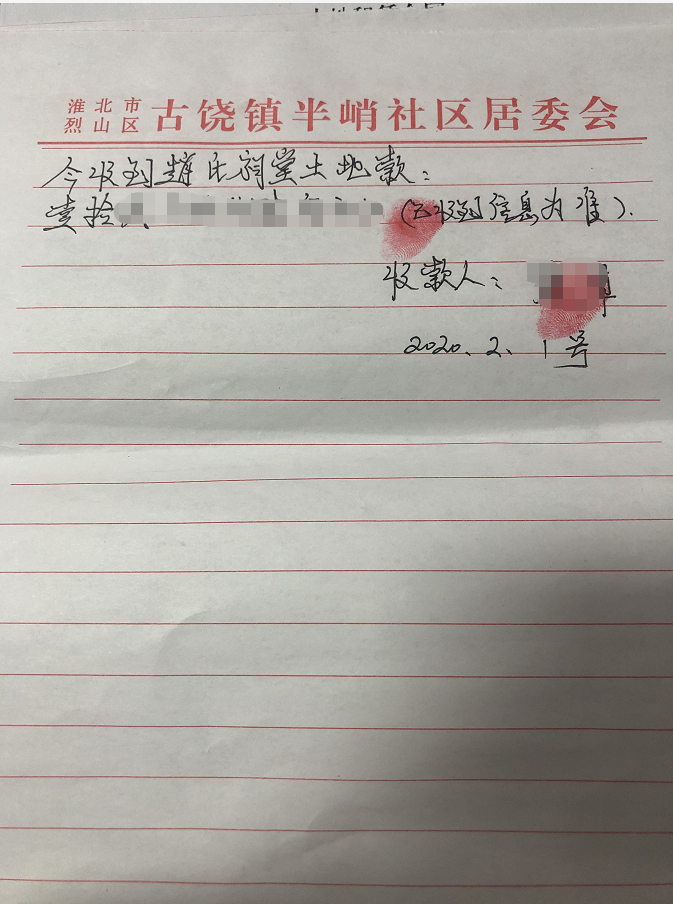 淮北市
烈山区 古饶镇半哨社区居委会
今收到赵氏祠堂土地款：
壹拾
(已收到信息为准).
收款人：
2020.2.1号